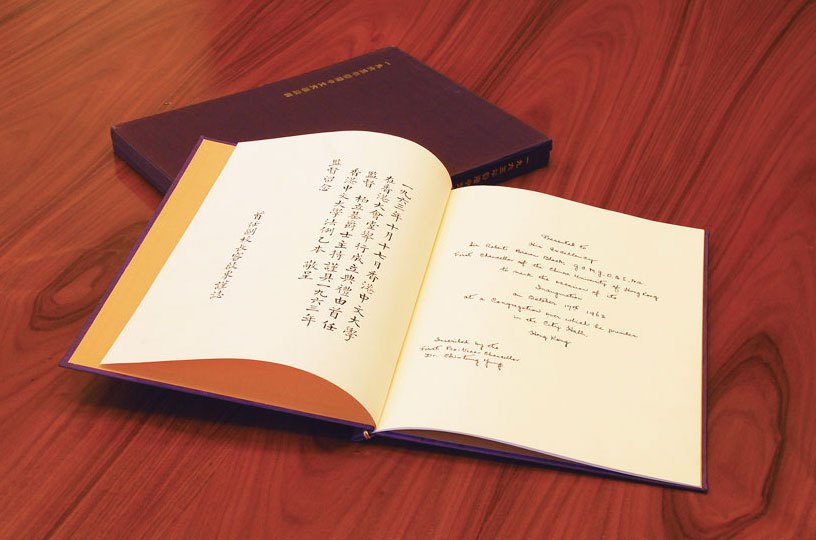 一九六三年香港中文大學法例
一九六三年香港中文
一九六三年十月十七日香港中文大學
在香港大會堂舉行成立典禮由首任
監督 柏立基爵士主持謹具一九六三年
香港中文大學法例乙本 敬呈
監督留念
首任副校長富啟年謹誌
Presented to
His Excellency
Sir Robert Brown Black, G.C.M.G., O.B.E., M.A.
First Chancellor of the Chinese University of Hong Kong
to mark the occasion of its
Inauguration
on October 17th 1963
at a Congregation over which he presides
in the City Hall
Hong Kong
Presented by the
First Pro-Vice-Chancellor
Dr. Chi-tung Yung